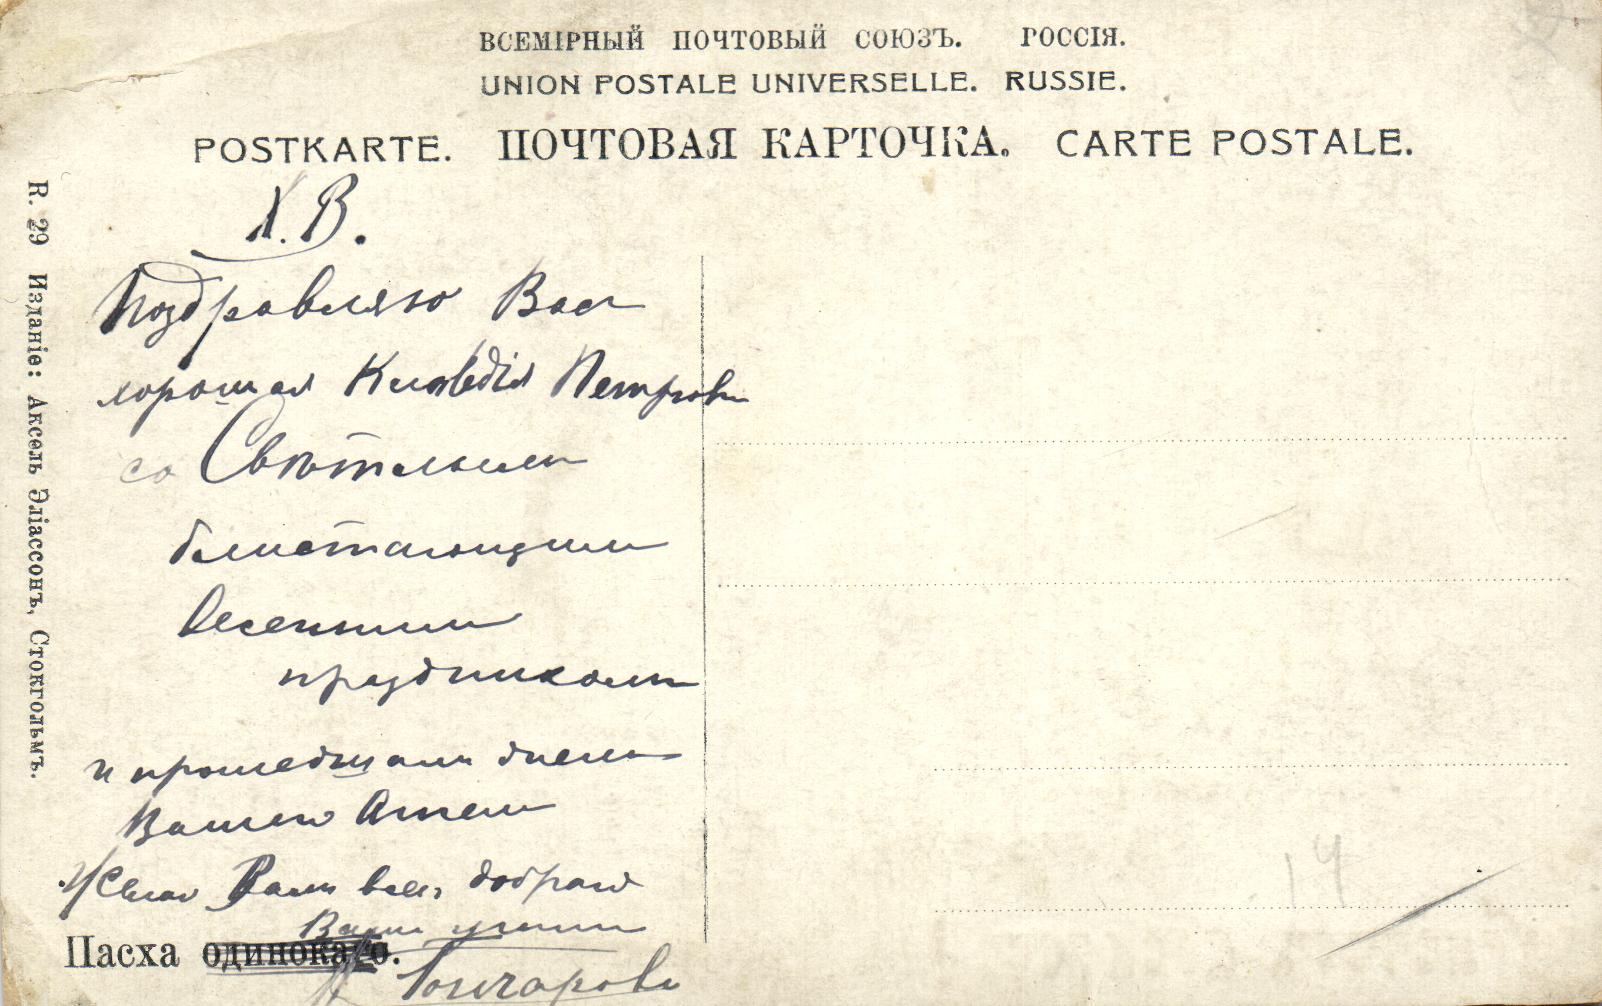 ВСЕМІРНЫЙ ПОЧТОВЫЙ СОЮЗЪ. РОССІЯ.
UNION POSTALE UNIVERSELLE. RUSSIE.
POSTKARTE. ПОЧТОВАЯ КАРТОЧКА. CARTE POSTALE.
R. 29 Изданіе: Аксель Эліассонъ, Стокгольмъ.
Х. В.
Поздравляю Васъ
хорошая Клавдія Петровн
со Свѣтлымъ
блистающимъ
весеннимъ
праздникомъ
и прошедшимъ днемъ
Вашего Ангела
Желаю Вамъ всего добраго
Вашъ
Пасха одинокаго.
Гончаровъ
14